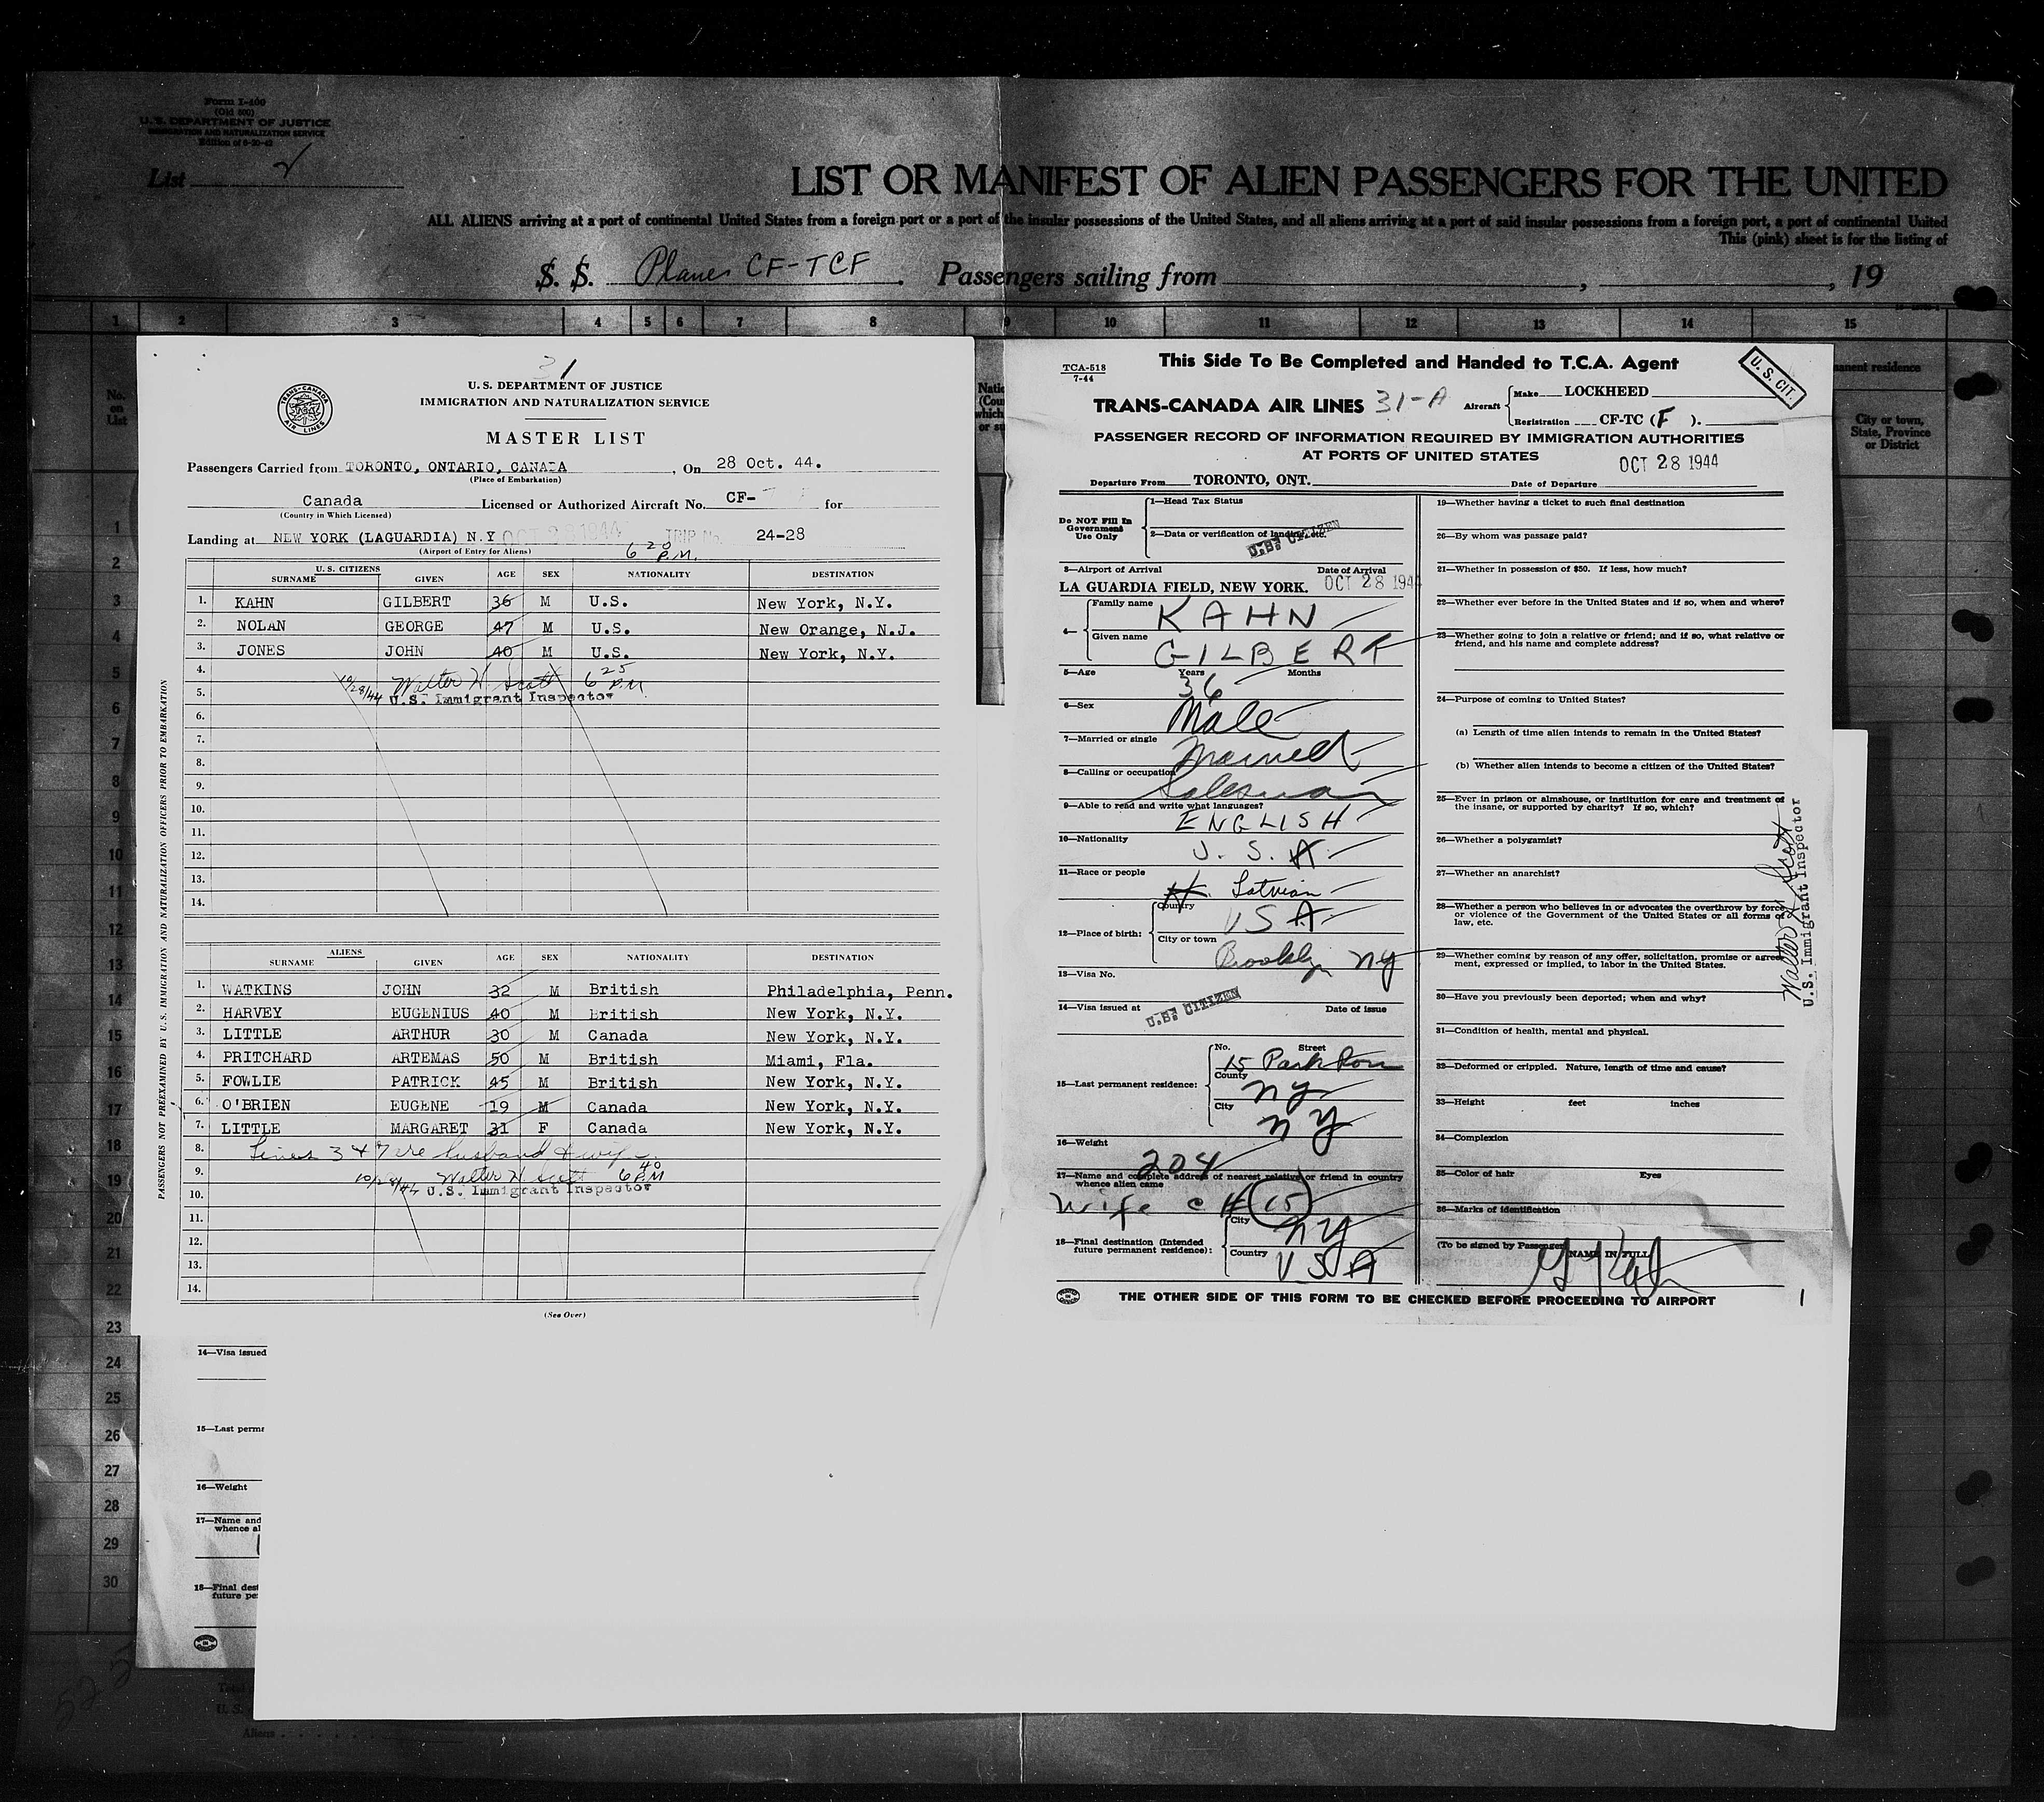 Form I-400
(Old 500)
U. S. DEPARTMENT OF JUSTICE
IMMIGRATION AND NATURALIZATION SERVICE
Edition of 6-20-42
List 2
LIST OR MANIFEST OF ALIEN PASSENGERS FOR THE UNITED
ALL ALIENS arriving at a port of continental United States from a foreign port or a port of the insular possessions of the United States, and all aliens arriving at a port of said insular possessions from a foreign port, a port of continental United
This (pink) sheet is for the listing of
S. S. Planes CF-TCF. Passengers sailing from , , 19
1 2 3 4 5 6 7 8 9 10 11 12 13 14 15
No. on List
manent residence
City or town, State, Province or District
31
TRANS-CANADA AIR LINES
U. S. DEPARTMENT OF JUSTICE
IMMIGRATION AND NATURALIZATION SERVICE
MASTER LIST
Passengers Carried from TORONTO, ONTARIO, CANADA, On 28 Oct. 44.
(Place of Embarkation)
Canada Licensed or Authorized Aircraft No. CF- for
(Country in Which Licensed)
Landing at NEW YORK (LAGUARDIA) N.Y OCT 28 1944 TRIP No. 24-28
(Airport of Entry for Aliens) 6 20 P.M.
U. S. CITIZENS
SURNAME GIVEN AGE SEX NATIONALITY DESTINATION
1. KAHN GILBERT 36 M U.S. New York, N.Y.
2. NOLAN GEORGE 47 M U.S. New Orange, N.J.
3. JONES JOHN 40 M U.S. New York, N.Y.
4. 10/28/44 Walter H Scott 6 25 P.M
5. U.S. Immigrant Inspector
6.
7.
8.
9.
10.
11.
12.
13.
14.
ALIENS
SURNAME GIVEN AGE SEX NATIONALITY DESTINATION
1. WATKINS JOHN 32 M British Philadelphia, Penn.
2. HARVEY EUGENIUS 40 M British New York, N.Y.
3. LITTLE ARTHUR 30 M Canada New York, N.Y.
4. PRITCHARD ARTEMAS 50 M British Miami, Fla.
5. FOWLIE PATRICK 45 M British New York, N.Y.
6. O'BRIEN EUGENE 19 M Canada New York, N.Y.
7. LITTLE MARGARET 31 F Canada New York, N.Y.
8. Lines 3 & 7 are husband & wife.
9. 10/28/44 Walter H Scott 6 40 P.M
10. U.S. Immigrant Inspector
11.
12.
13.
14.
(See Over)
PASSENGERS NOT PREEXAMINED BY U. S. IMMIGRATION AND NATURALIZATION OFFICERS PRIOR TO EMBARKATION
This Side To Be Completed and Handed to T.C.A. Agent
TCA-518
7-44
U. S. CIT.
TRANS-CANADA AIR LINES 31-A
Aircraft Make LOCKHEED
Registration CF-TC (F ).
PASSENGER RECORD OF INFORMATION REQUIRED BY IMMIGRATION AUTHORITIES
AT PORTS OF UNITED STATES
OCT 28 1944
Departure From TORONTO, ONT. Date of Departure
Do NOT Fill In Government Use Only
1—Head Tax Status
2—Data or verification of landing, etc.
U.S. CITIZEN
3—Airport of Arrival Date of Arrival
LA GUARDIA FIELD, NEW YORK. OCT 28 1944
4— Family name KAHN
Given name GILBERT
5—Age Years 36 Months
6—Sex Male
7—Married or single Married
8—Calling or occupation Salesman
9—Able to read and write what languages?
ENGLISH
10—Nationality U. S. A.
11—Race or people Latvian
12—Place of birth: Country USA
City or town Brooklyn NY
13—Visa No.
14—Visa issued at U.S. CITIZEN Date of issue
15—Last permanent residence: No. Street
15 Park Row
County NY
City NY
16—Weight 204
17—Name and complete address of nearest relative or friend in country
whence alien came
Wife c # 15
18—Final destination (Intended
future permanent residence): City NY
Country USA
19—Whether having a ticket to such final destination
20—By whom was passage paid?
21—Whether in possession of $50. If less, how much?
22—Whether ever before in the United States and if so, when and where?
23—Whether going to join a relative or friend; and if so, what relative or
friend, and his name and complete address?
24—Purpose of coming to United States?
(a) Length of time alien intends to remain in the United States?
(b) Whether alien intends to become a citizen of the United States?
25—Ever in prison or almshouse, or institution for care and treatment of
the insane, or supported by charity? If so, which?
26—Whether a polygamist?
27—Whether an anarchist?
28—Whether a person who believes in or advocates the overthrow by force
or violence of the Government of the United States or all forms of
law, etc.
29—Whether coming by reason of any offer, solicitation, promise or agree-
ment, expressed or implied, to labor in the United States.
30—Have you previously been deported; when and why?
31—Condition of health, mental and physical.
32—Deformed or crippled. Nature, length of time and cause?
33—Height feet inches
34—Complexion
35—Color of hair Eyes
36—Marks of identification
(To be signed by Passenger) NAME IN FULL
G Kahn
Walter H Scott
U.S. Immigrant Inspector
THE OTHER SIDE OF THIS FORM TO BE CHECKED BEFORE PROCEEDING TO AIRPORT 1
1
2
3
4
5
6
7
8
9
10
11
12
13
14
15
16
17
18
19
20
21
22
23
24
25
26
27
28
29
30
14—Visa issued
15—Last perma
16—Weight
17—Name and
whence al
18—Final dest
future pe
Total
U. S.
Aliens
525